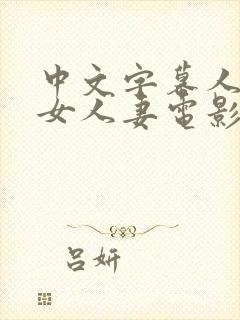 中文字幕人
女人妻电影
吕妍